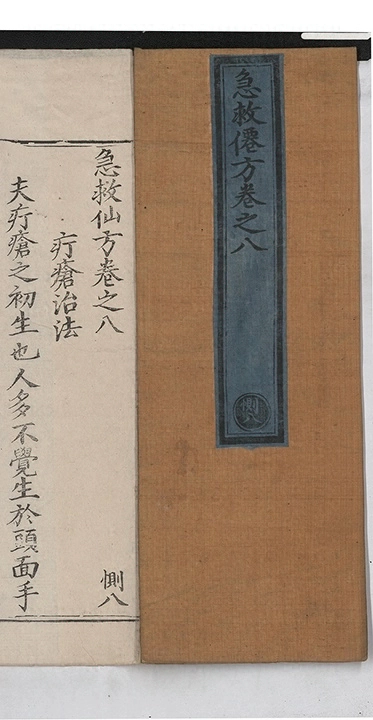 急救僊方卷之八
惻八
急救仙方卷之八
惻八
疔瘡治法
夫疔瘡之初生也人多不覺生於頭面手